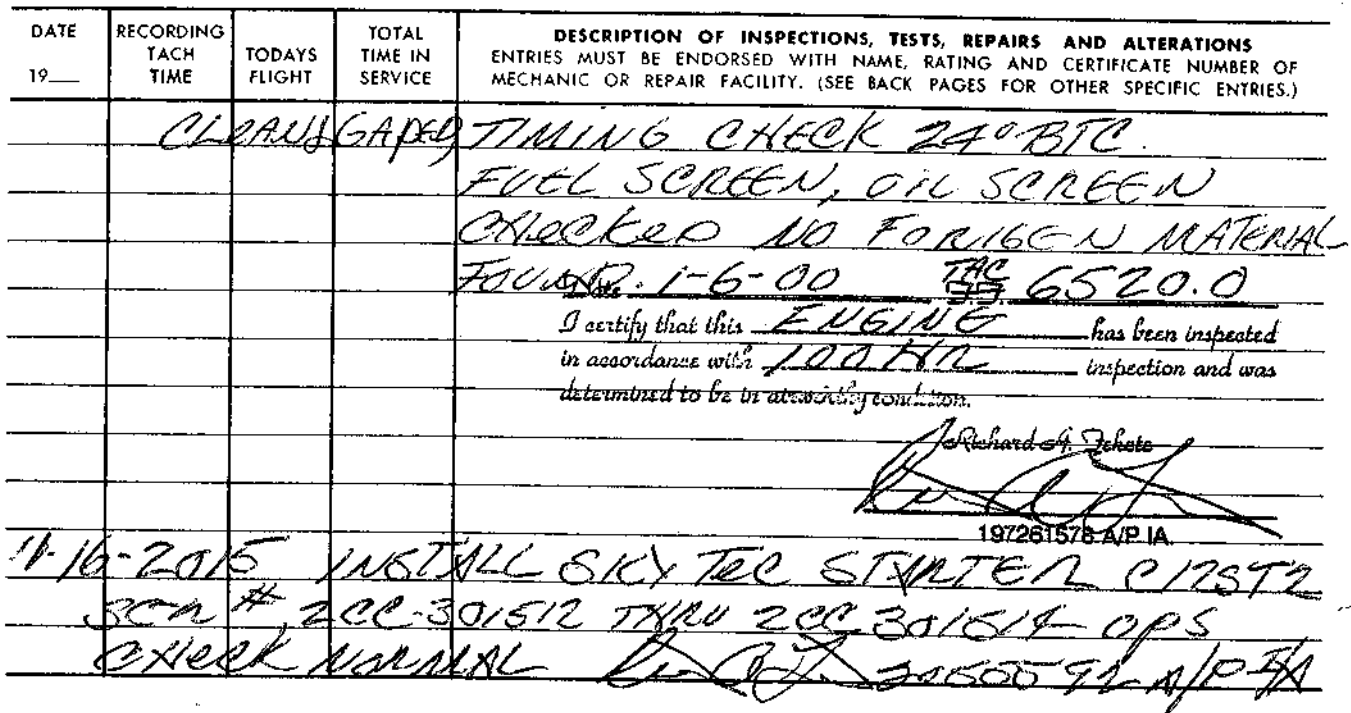 DATE
19__
RECORDING
TACH
TIME
TODAYS
FLIGHT
TOTAL
TIME IN
SERVICE
DESCRIPTION OF INSPECTIONS, TESTS, REPAIRS AND ALTERATIONS
ENTRIES MUST BE ENDORSED WITH NAME, RATING AND CERTIFICATE NUMBER OF
MECHANIC OR REPAIR FACILITY. (SEE BACK PAGES FOR OTHER SPECIFIC ENTRIES.)
CLEAN & GAPED, TIMING CHECK 24° BTC.
FUEL SCREEN, OIL SCREEN
CHECKED NO FORIGEN MATERIAL
FOUND. Date 1-6-00 TAC 6520.0
I certify that this ENGINE has been inspected
in accordance with 100 HR inspection and was
determined to be in airworthy condition.
Richard A. Fekete
197261578 A/P IA
11-16-2015 INSTALL SKY TEC STARTER C12ST2
SER #, 2CC-301512 THRU 2CC 301514 OPS
CHECK NORMAL A/P I/A